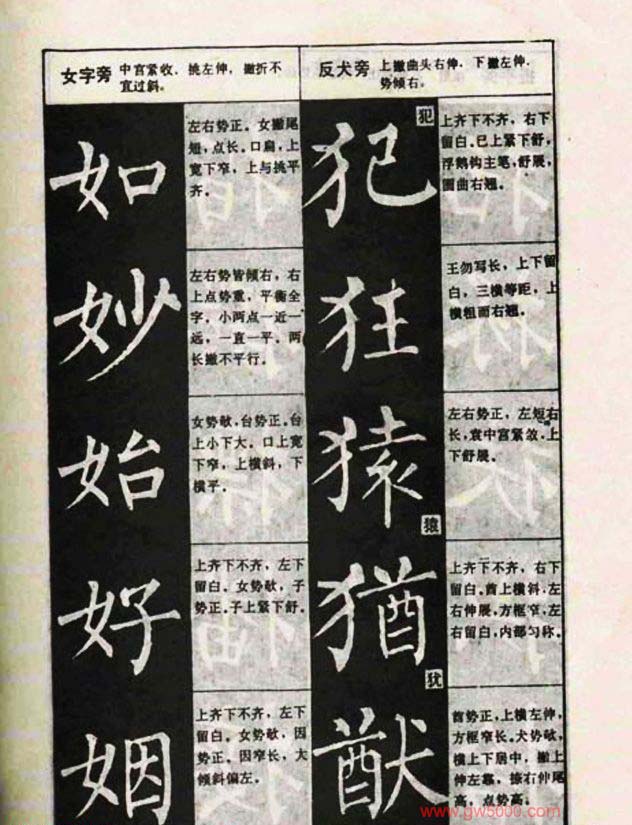 女字旁 中宫紧收，挑左伸，撇折不
宜过斜。
如
左右势正。女撇尾
短，点长。口扁，上
宽下窄，上与挑平
齐。
妙
左右势皆倾右，右
上点势重，平衡全
字，小两点一近一
远，一直一平。两
长撇不平行。
始
女势欹，台势正。台
上小下大。口上宽
下窄，上横斜，下
横平。
好
上齐下不齐，左下
留白。女势欹，子
势正。子上紧下舒。
姻
上齐下不齐，左下
留白。女势欹，因
势正。因窄长，大
倾斜偏左。
反犬旁 上撇曲头右伸，下撇左伸，
势倾右。
犯
犯
上齐下不齐，右下
留白。巳上紧下舒，
浮鹅钩主笔，舒展，
圆曲右翘。
狂
王勿写长，上下留
白，三横等距，上
横粗而右翘。
猿
猿
左右势正，左短右
长，袁中宫紧敛，上
下舒展。
猶
犹
上齐下不齐，右下
留白。酋上横斜，左
右伸展，方框窄，左
右留白，内部匀称。
猷
酋势正，上横左伸，
方框窄长。犬势欹，
横上下居中，撇上
伸左靠，捺右伸尾
高，点势高。
www.gw5000.com